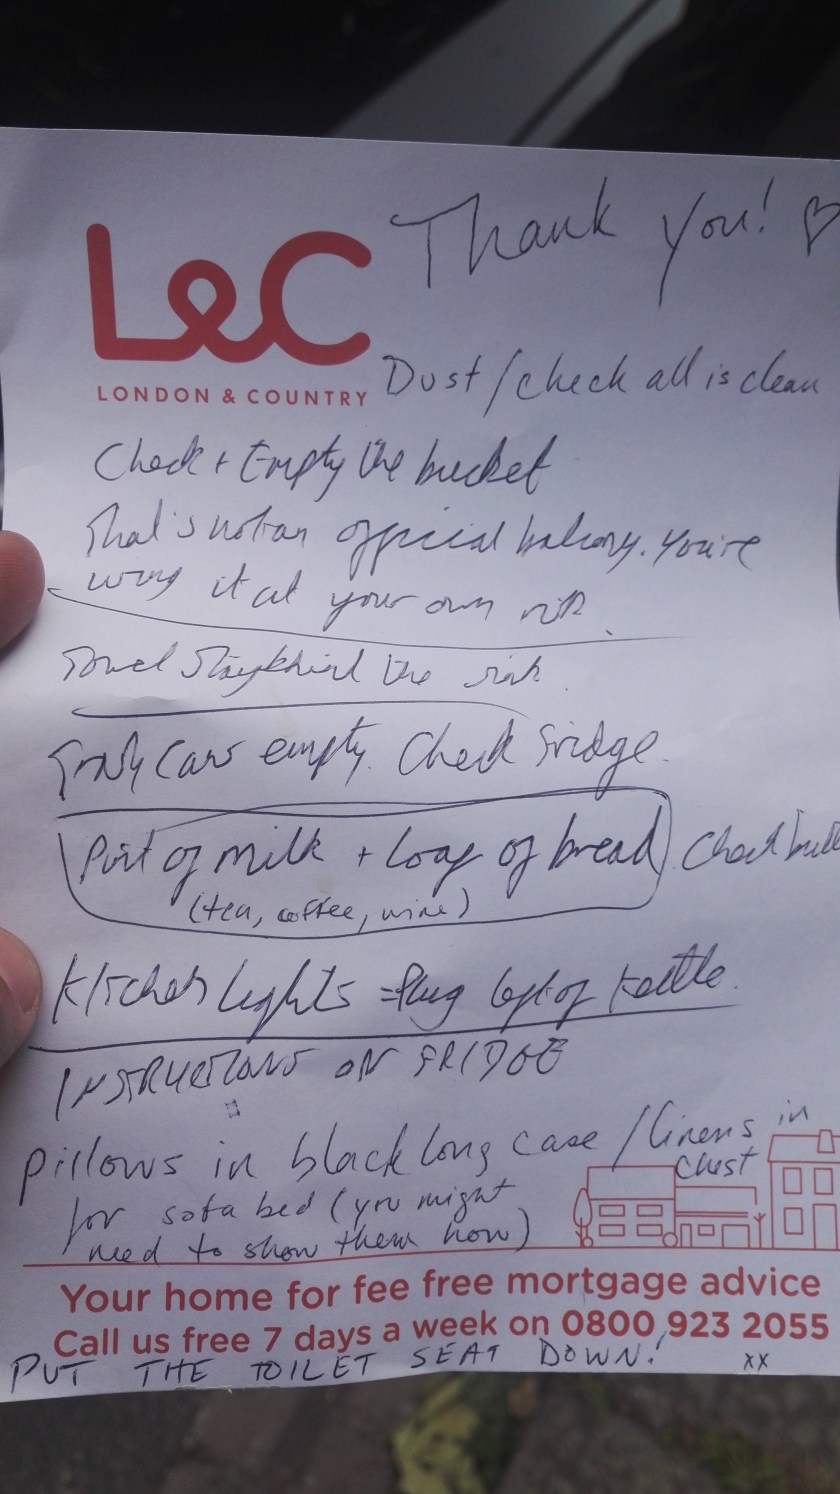 Thank you! ♡
L&C
LONDON & COUNTRY
Dust / check all is clean
Check + Empty the bucket
That's not an official balcony. You're
using it at your own risk.
Towel stays behind the sink.
empty. Check Fridge.
Pint of milk + Loaf of bread. Check
(tea, coffee, wine)
Kitchen Lights = Plug left of kettle.
INSTRUCTIONS ON FRIDGE
Pillows in black long case / linens in
chest
for sofa bed (you might
need to show them how)
Your home for fee free mortgage advice
Call us free 7 days a week on 0800 923 2055
PUT THE TOILET SEAT DOWN! xx